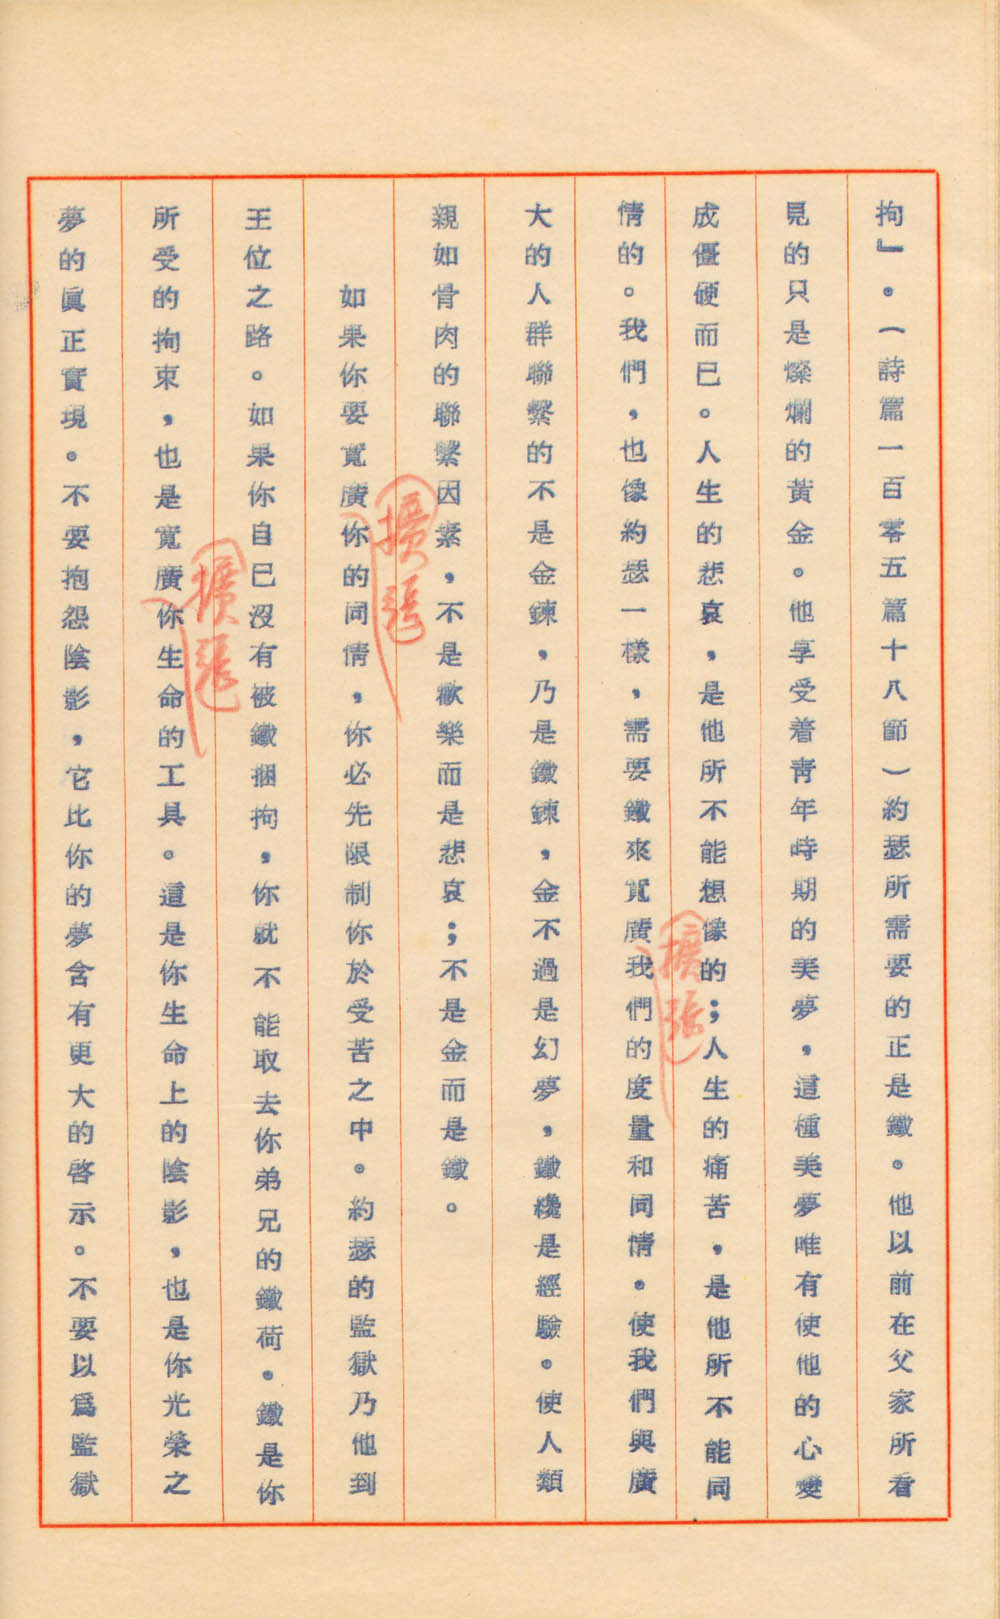 拘』。（詩篇一百零五篇十八節）約瑟所需要的正是鐵。他以前在父家所看
見的只是燦爛的黃金。他享受着青年時期的美夢，這種美夢唯有使他的心變
成僵硬而已。人生的悲哀，是他所不能想像的；人生的痛苦，是他所不能同
情的。我們，也像約瑟一樣，需要鐵來寬廣我們的度量和同情。使我們與廣
擴張
大的人群聯繫的不是金鍊，乃是鐵鍊，金不過是幻夢，鐵纔是經驗。使人類
親如骨肉的聯繫因素，不是歡樂而是悲哀；不是金而是鐵。
如果你要寬廣你的同情，你必先限制你於受苦之中。約瑟的監獄乃他到
擴張
王位之路。如果你自己沒有被鐵捆拘，你就不能取去你弟兄的鐵荷。鐵是你
所受的拘束，也是寬廣你生命的工具。這是你生命上的陰影，也是你光榮之
擴張
夢的眞正實現。不要抱怨陰影，它比你的夢含有更大的啓示。不要以爲監獄